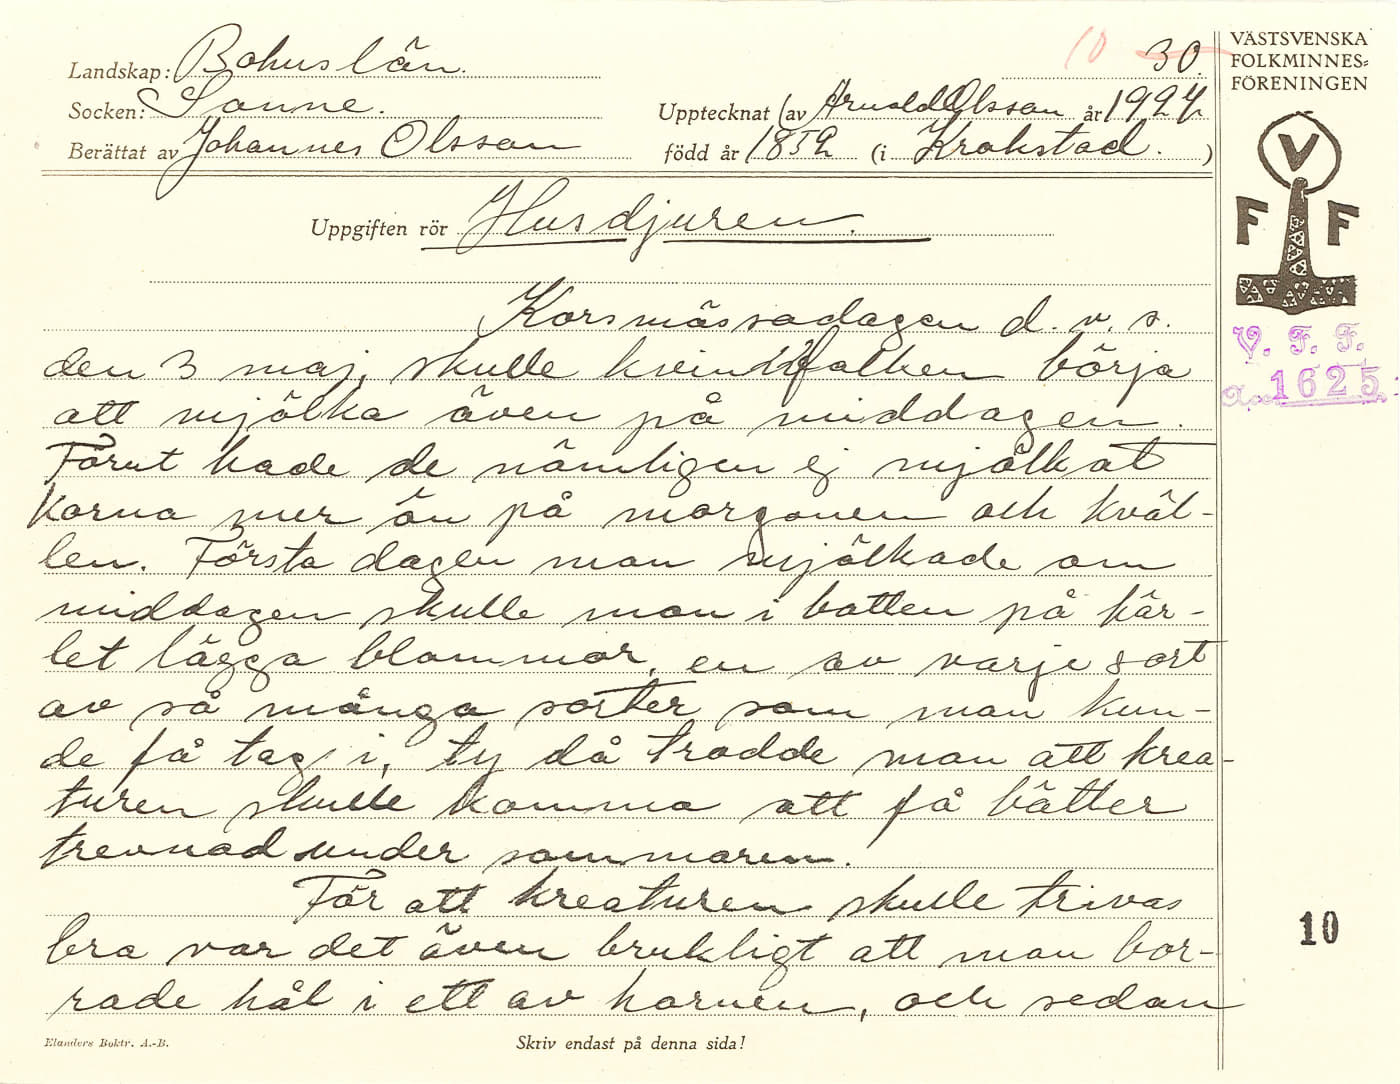 Landskap: Bohuslän.
10 30
VÄSTSVENSKA
FOLKMINNES=
FÖRENINGEN
Socken: Sanne.
Upptecknat (av Arnold Olsson år 1927
Berättat av Johannes Olsson
född år 1852 (i Krokstad. )
Uppgiften rör Husdjuren.
V
F F
V. F. F.
Acc. 1625.
Korsmässodagen d. v. s.
den 3 maj, skulle kvinnfolken börja
att mjölka även på middagen.
Förut hade de nämligen ej mjölkat
korna mer än på morgonen och kväl-
len. Första dagen man mjölkade om
middagen skulle man i botten på kär-
let lägga blommor, en av varje sort
av så många sorter som man kun-
de få tag i, ty då trodde man att krea-
turen skulle komma att få bätter
trevnad under sommaren.
För att kreaturen skulle trivas
bra var det även brukligt att man bor-
rade hål i ett av hornen, och sedan
10
Elanders Boktr. A.-B.
Skriv endast på denna sida!